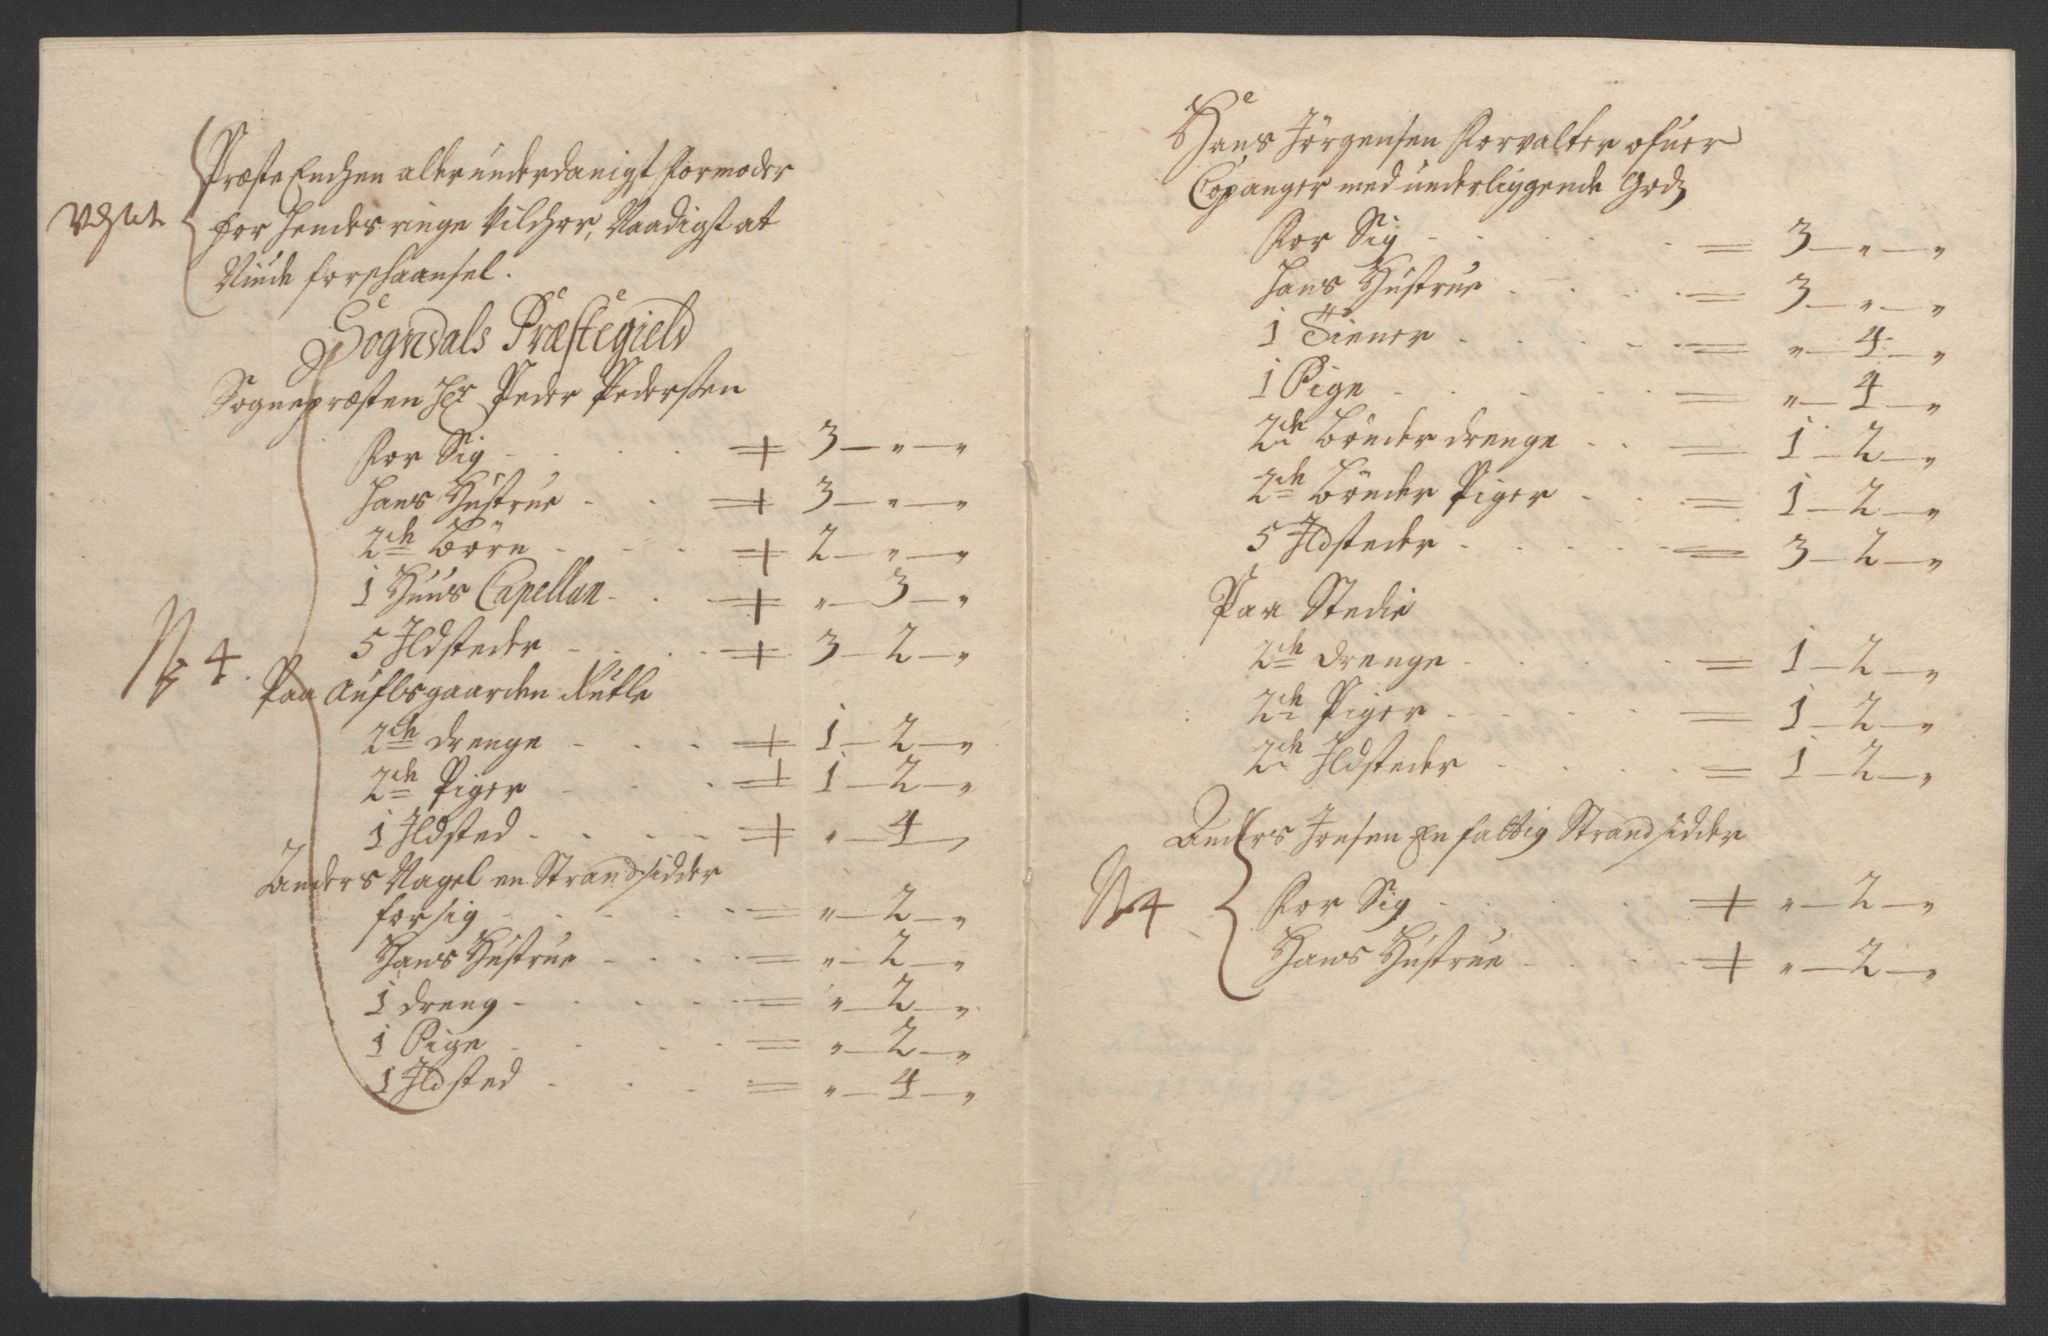 Præste Enchen allerunderdanigst formoder
for hendes ringe Vilchor, Naadigst at
Niude forschaansel.
Sogndals Præstegield
Sognepræsten Hr Peder Pedersen
For Sig - - - = 3 — " — "
Hans Hustrue - - = 3 — " — "
2de Börn - - - = 2 — " — "
1 Huus Capellan - - = " — 3 — "
N: 4.
5 Ildsteder - - - = 3 — 2 — "
Paa Auflsgaarden Nutle
2de drenge - - - = 1 — 2 — "
2de Piger - - - = 1 — 2 — "
1 Ildsted - - - = " — 4 — "
Anders Nagel en Strandsidder
for sig - - - = " — 2 — "
Hans Hustrue - - - = " — 2 — "
1 dreng - - - = " — 2 — "
1 Pige - - - = " — 2 — "
1 Ildsted - - - = " — 4 — "
Hans Jörgensen Forvalter ofuer
Copanger med underliggende Grdz
For Sig - - - = 3 — " — "
Hans Hustrue - - - = 3 — " — "
1 Tiener - - - = " — 4 — "
1 Pige - - - = " — 4 — "
2de Bönder drenge - - = 1 — 2 — "
2de Bönder Piger - - = 1 — 2 — "
5 Ildsteder - - - = 3 — 2 — "
Paa Stedie
2de drenge - - - = 1 — 2 — "
2de Piger - - - = 1 — 2 — "
2de Ildsteder - - - = 1 — 2 — "
Anders Jensen En fattig Strandsidder
N 4
For Sig - - - = " — 2 — "
Hans Hustrue - - - = " — 2 — "